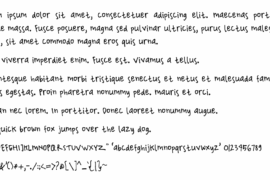 ipsum dolor sit amet, consectetuer adipiscing elit. maecenas port
e massa. Fusce posuere, magna sed pulvinar ultricies, purus lectus males
, sit amet commodo magna eros quis urna.
viverra imperdiet enim. Fusce est. Vivamus a tellus.
ntesque habitant morbi tristique senectus et netus et malesuada fam
s egestas. Proin pharetra nonummy pede. mauris et orci.
an nec lorem. In porttitor. Donec laoreet nonummy augue.
quick brown fox jumps over the lazy dog.
EFGHIJKLMNOPQRSTUVWXYZ abcdefghijklmnopqrstuvwxyz 0123456789
&'()*+,-./:;<=>?@[\]^_`{|}~